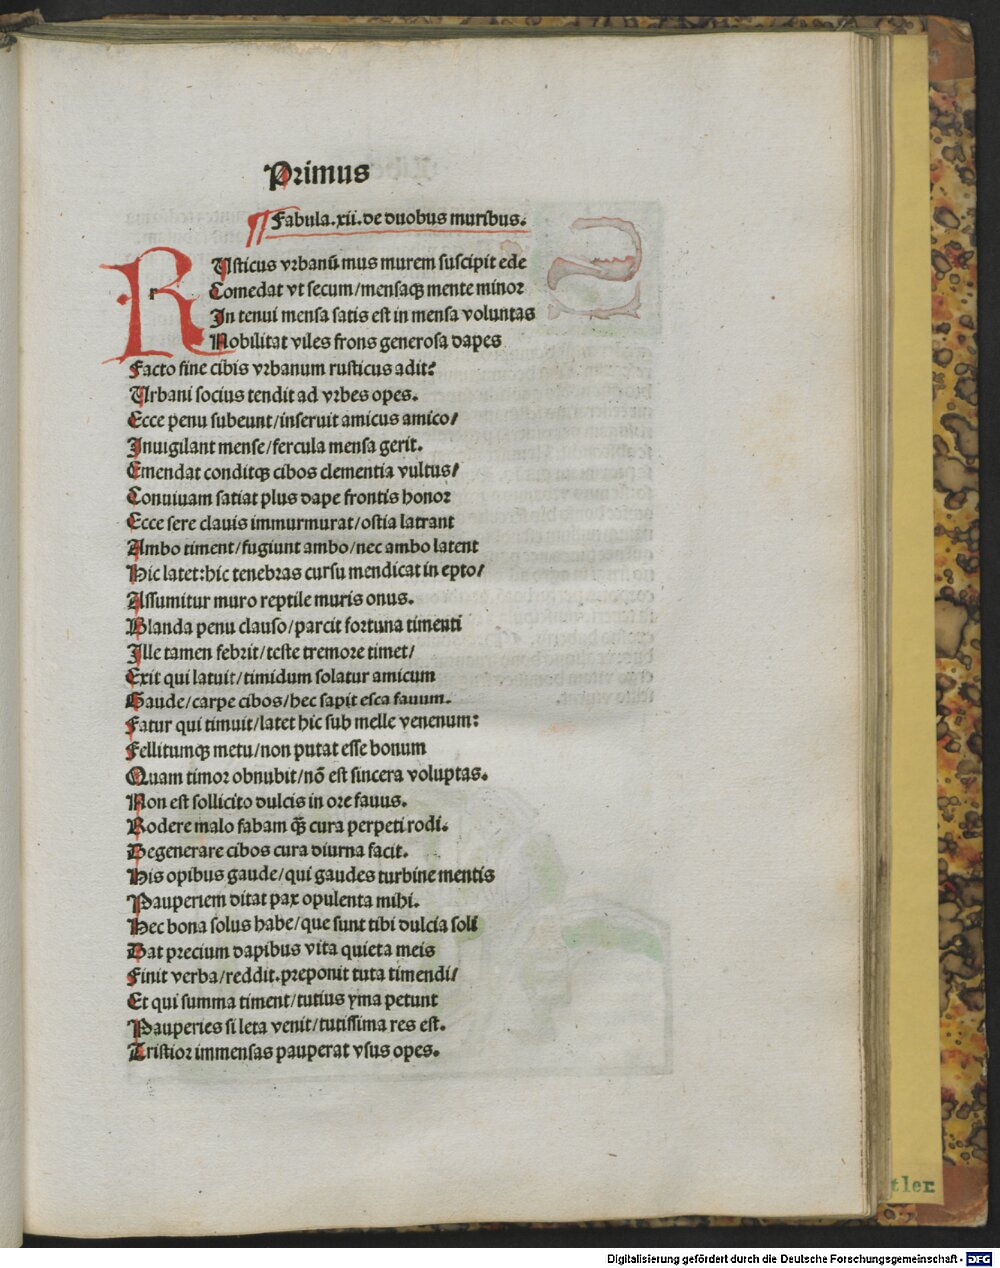 Primus
¶ Fabula.xii.de duobus muribus.
RUsticus vrbanū mus murem suscipit ede
Comedat vt secum/mensaqꝫ mente minor
In tenui mensa satis est in mensa voluntas
Nobilitat viles frons generosa dapes
Facto fine cibis vrbanum rusticus adit:
Urbani socius tendit ad vrbes opes.
Ecce penu subeunt/inseruit amicus amico/
Inuigilant mense/fercula mensa gerit.
Emendat conditqꝫ cibos clementia vultus/
Conuiuam satiat plus dape frontis honor
Ecce sere clauis immurmurat/ostia latrant
Ambo timent/fugiunt ambo/nec ambo latent
Hic latet:hic tenebras cursu mendicat in epto/
Assumitur muro reptile muris onus.
Blanda penu clauso/parcit fortuna timenti
Ille tamen febrit/teste tremore timet/
Exit qui latuit/timidum solatur amicum
Gaude/carpe cibos/hec sapit esca fauum.
Fatur qui timuit/latet hic sub melle venenum:
Fellitumqꝫ metu/non putat esse bonum
Quam timor obnubit/nō est sincera voluptas.
Non est sollicito dulcis in ore fauus.
Rodere malo fabam qꝫ̄ cura perpeti rodi.
Degenerare cibos cura diurna facit.
His opibus gaude/qui gaudes turbine mentis
Pauperiem ditat pax opulenta mihi.
Hec bona solus habe/que sunt tibi dulcia soli
Dat precium dapibus vita quieta meis
Finit verba/reddit.preponit tuta timendi/
Et qui summa timent/tutius yma petunt
Pauperies si leta venit/tutissima res est.
Tristior immensas pauperat vsus opes.
tler
Digitalisierung gefördert durch die Deutsche Forschungsgemeinschaft - DFG